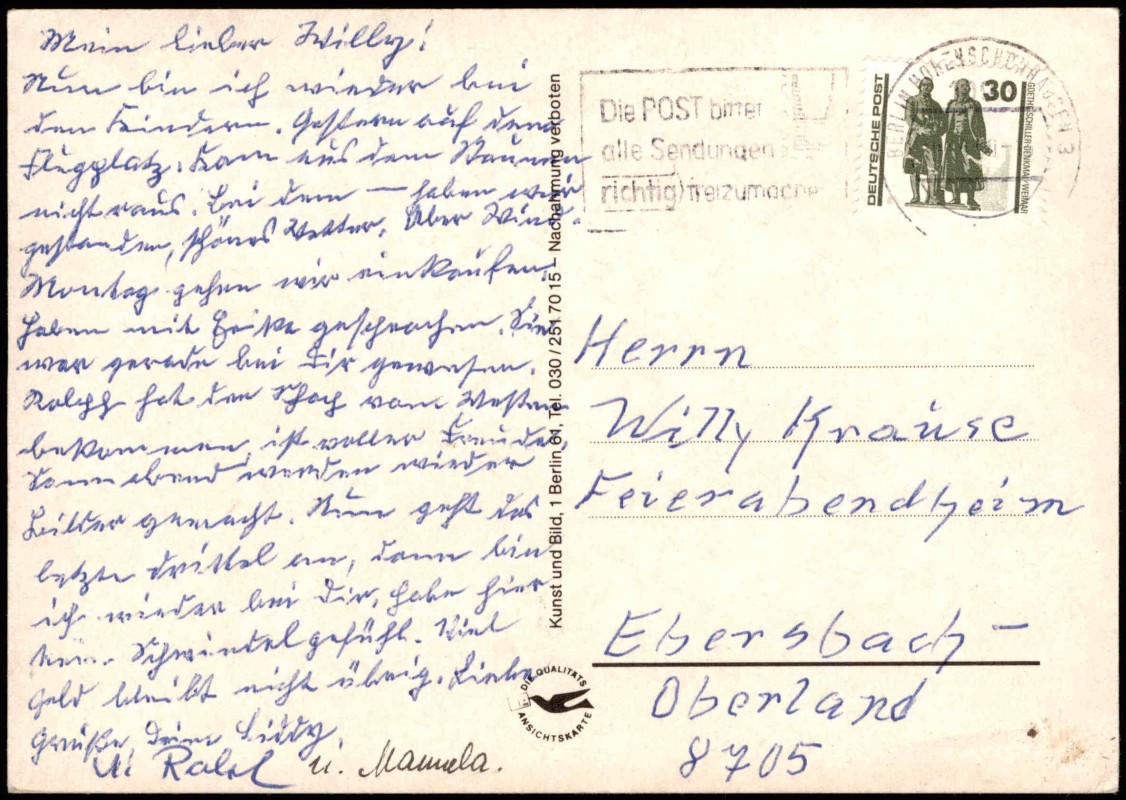 Mein lieber Willy!
Nun bin ich wieder bei
den Kindern. Gestern auf dem
Flugplatz. Kam aus dem Staunen
nicht raus. Bei dem — haben wir
gestanden, schönes Wetter. Aber Wind.
Montag gehen wir einkaufen.
Haben mit gesprochen. Sie
war gerade bei Dir gewesen.
hat den vom Westen
bekommen, ist voller Freude.
Sonnabend werden wieder
Bilder gemacht. Nun geht das
letzte Drittel an, dann bin
ich wieder bei Dir, habe hier
kein Schwindelgefühl. Viel
Geld bleibt nicht übrig. Liebe
Grüße, Deine Liddy.
u. Manuela.
Kunst und Bild, 1 Berlin 61, Tel. 030/251 70 15 – Nachahmung verboten
DIE QUALITÄTS
ANSICHTSKARTE
Die POST bittet
alle Sendungen
richtig freizumachen
BERLIN HOHENSCHÖNHAUSEN 3
DEUTSCHE POST
30
GOETHE-SCHILLER-DENKMAL WEIMAR
Herrn
Willy Krause
Feierabendheim
Ebersbach-
Oberland
8705